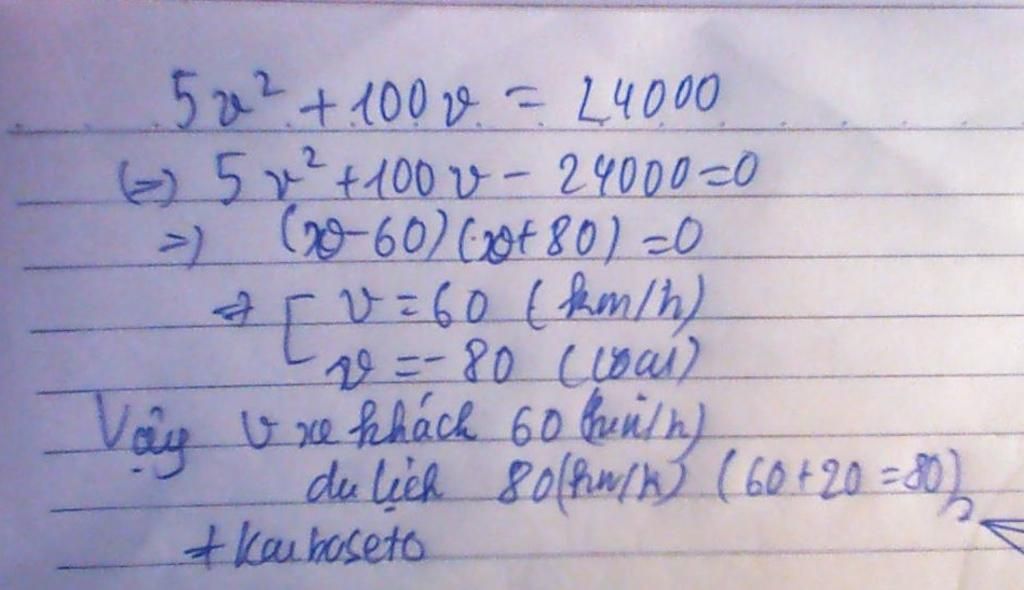 5v² + 100v = 24000
(=) 5v² + 100v - 24000 = 0
=) (v - 60)(v + 80) = 0
=> [ v = 60 (km/h)
v = - 80 (loại)
Vậy v xe khách 60 (km/h)
du lịch 80 (km/h) (60 + 20 = 80)